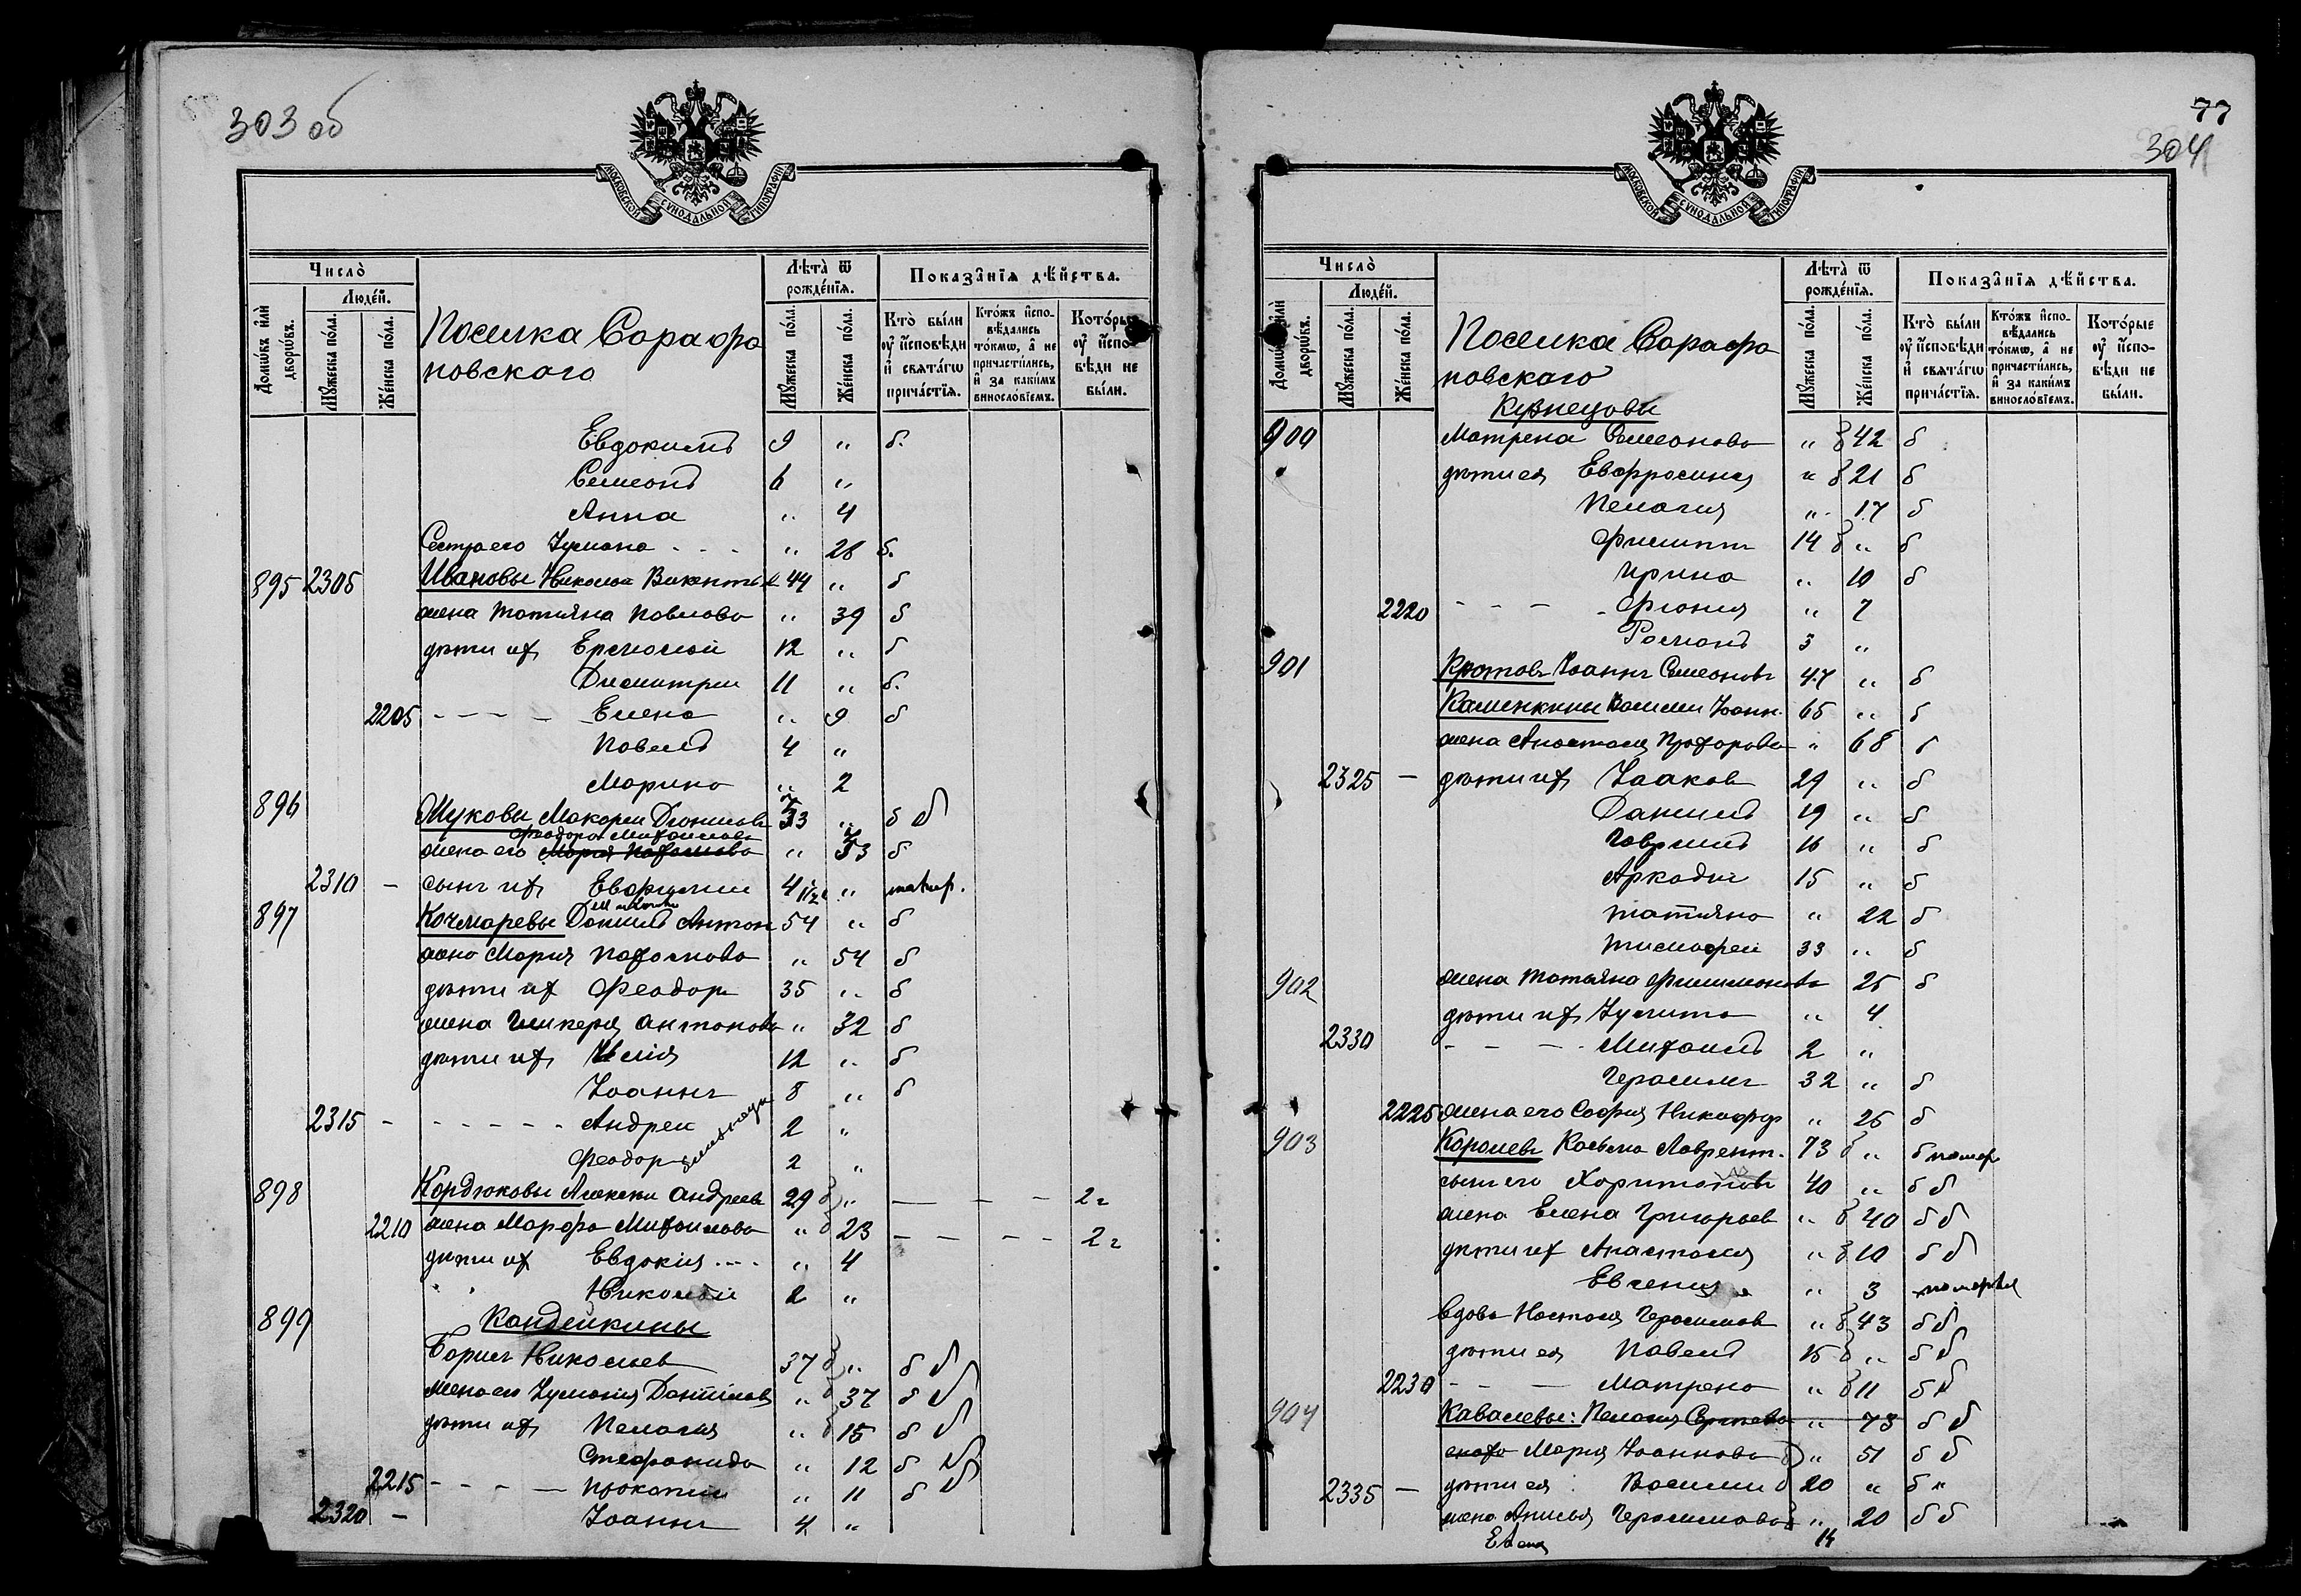 303 об
МОСКОВСКОЙ СѴНОДАЛЬНОЙ ТИПОГРАФІИ
Число̀
Домѡ́въ и҆лѝ дворѡ́въ.
Люде́й.
Мꙋ́жеска по́ла.
Же́нска по́ла.
Поселка Сарафа
новскаго
Лѣта̀ ѿ рожде́нїѧ.
Мꙋ́жеска по́ла.
Же́нска по́ла.
Показа̑нїѧ дѣ́йства.
Кто̀ бы́ли оу҆ и҆сповѣ́ди и҆ свѧта́гѡ прича́стїѧ.
Кто́жъ и҆спо-вѣ́дались то́кмѡ, а҆ не причасти́лись, и҆ за каки́мъ винослові́емъ.
Кото́рые оу҆ и҆спо-вѣ́ди не бы́ли.
Евдокимъ 9 " б.
Симеонъ 6 "
Анна " 4
Сестра его Iулиана - - - " 28 б.
895 2305 Ивановы Николай Викентьев 44 " б
жена Татьяна Павлова " 39 б
дѣти их Ермолай 12 " б
Димитрий 11 " б.
2205 - - - - Елена " 9 б
Павелъ 4 "
Марина " 2
896 Жуковы Макарий Дионисов 33 " б б
Феодора Михаилова
жена его " 33 б
2310 - сынъ их Евфимий 4 1/2 "
897 Кочмаревы Данилъ Антон 54 " б
жена Мария Пахомова " 54 б
дѣти их Феодор 35 " б
жена Гликерия Антонова " 32 б
дѣти их Илiя 12 " б
Iоаннъ 8 " б
2315 - - - - - - Андрей 2 "
Феодор близнецы 2 "
898 Кордюковы Алексей Андреев 29 " — - - 2 г
2210 жена Марфа Михаилова " 23 - - - - 2 г
дѣти их Евдокия - - - " 4
Николай 2 "
899 Канделкины
Борисъ Николаев 37 " б б
жена его Iулиания Данiилов " 37 б б
дѣти их Пелагия " 15 б б
Стефанида " 12 б б
2215 - - - - Прокопий " 11 б б
2320 - Iоаннъ 4 "
77
304
МОСКОВСКОЙ СѴНОДАЛЬНОЙ ТИПОГРАФІИ
Число̀
Домѡ́въ и҆лѝ дворѡ́въ.
Люде́й.
Мꙋ́жеска по́ла.
Же́нска по́ла.
Поселка Сарафа
новскаго
Лѣта̀ ѿ рожде́нїѧ.
Мꙋ́жеска по́ла.
Же́нска по́ла.
Показа̑нїѧ дѣ́йства.
Кто̀ бы́ли оу҆ и҆сповѣ́ди и҆ свѧта́гѡ прича́стїѧ.
Кто́жъ и҆спо-вѣ́дались то́кмѡ, а҆ не причасти́лись, и҆ за каки́мъ винослові́емъ.
Кото́рые оу҆ и҆спо-вѣ́ди не бы́ли.
Кузнецовы
900 Матрена Симеонова " 42 б
дѣти ея Евфросиния " 21 б
Пелагия " 17 б
Филиппъ 14 " б
Ирина " 10 б
2220 - - - - Агафия " 7
Романъ 3 "
901 Кротовъ Iоаннъ Симеоновъ 47 " б
Каменкины Василий Iоанн. 65 " б
жена Анастасия Прохорова " 68 б
2325 - дѣти их Iаков 29 " б
Данилъ 19 " б
Гавриилъ 16 " б
Аркадий 15 " б
Татьяна " 22 б
Тимофей 33 " б
902 жена Татьяна Филимонова 25 б
дѣти их Iулита " 4
2330 - - - - Михаилъ 2 "
Герасимъ 32 " б
2225 жена его София Никифор " 25 б
903 Королевъ Косьма Лаврент. 73 " б помер
сынъ его Харитонов 40 " б б
жена Елена Григорьев " 40 б б
дѣти их Анастасия " 10 б б
Евгения " 3 померла
вдова Настасия Герасимов " 43 б б
дѣти ея Павелъ 15 " б б
2230 - - — Матрена " 11 б б
904 Кавалевы: Пелагия Сергеева " 73 б б
сноха Мария Iоаннова " 51 б б
2335 - дѣти ея: Василий 20 " б "
жена Анисья Герасимова " 20 б б
Елена 14